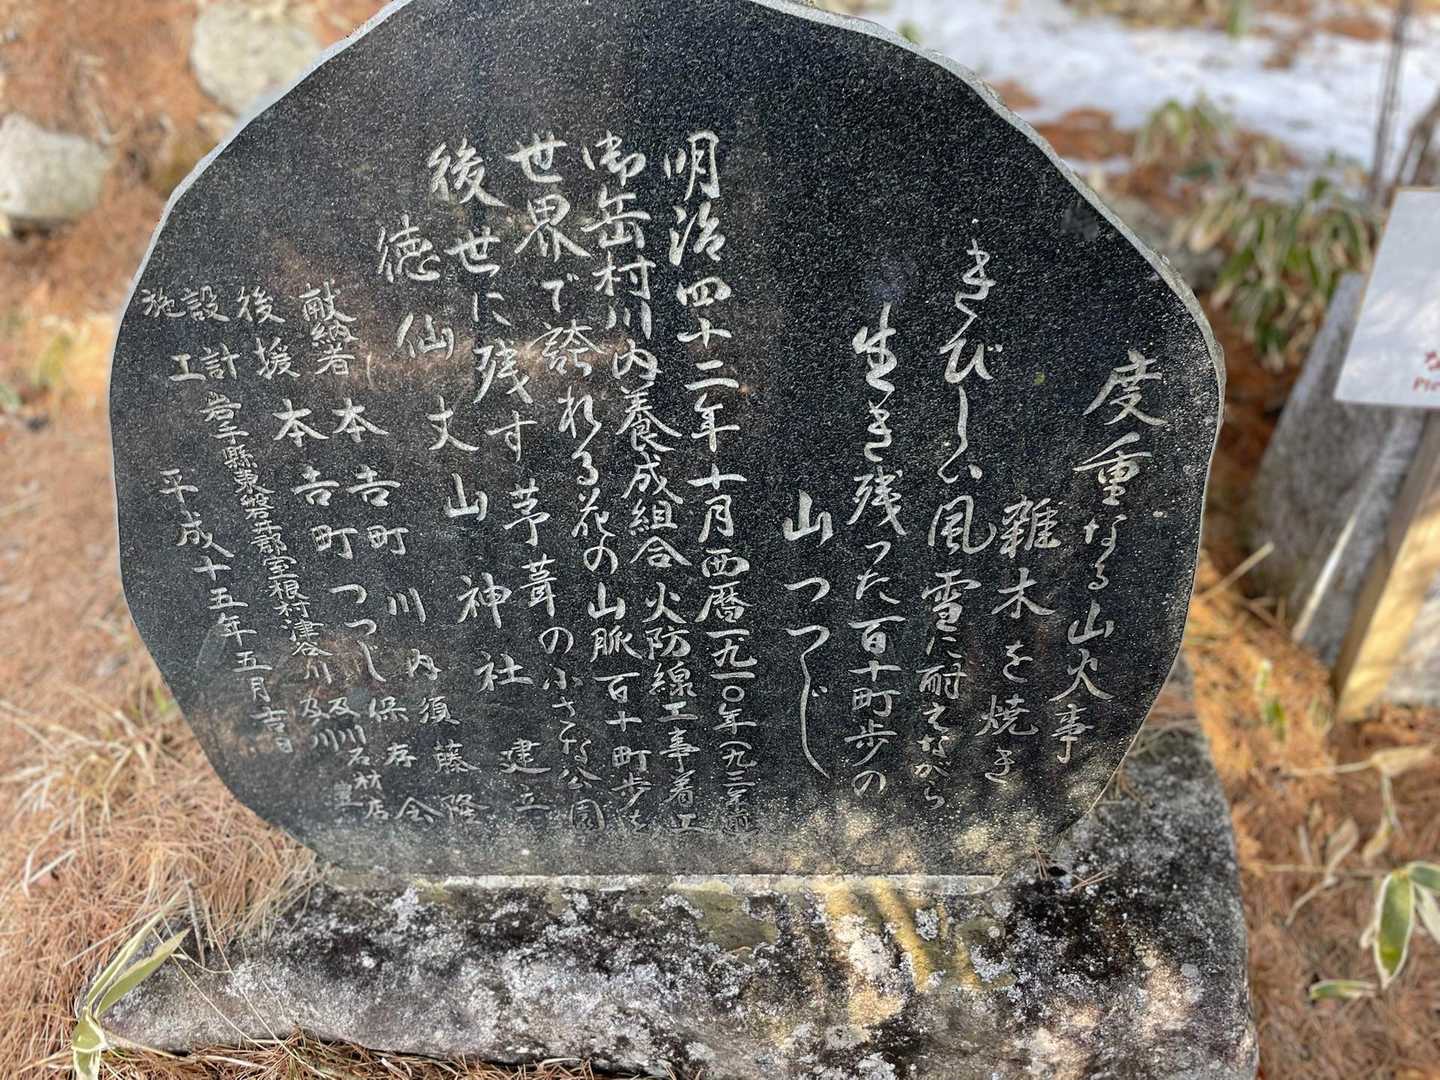 度重なる山火事
雑木を焼き
きびしい風雪に耐えながら
生き残った百十町歩の
山つつじ
明治四十二年十月西暦一九一〇年(九三年前)
御岳村川内養成組合火防線工事着工
世界で誇れる花の山脈百十町歩を
後世に残す茅葺の小さな公園
徳仙丈山神社建立
献納者 本吉町川内 須藤隆
後援 本吉町つつじ保存会
設計 岩手縣東磐井郡室根村津谷川 及川石材店
施工 及川
平成十五年五月吉日